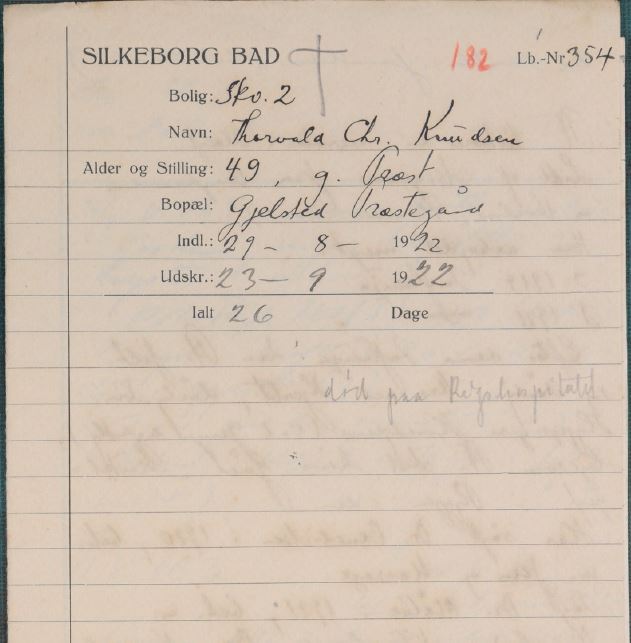 SILKEBORG BAD 182 Lb.-Nr 354
Bolig: Sko. 2
Navn: Thorvald Chr. Knudsen
Alder og Stilling: 49, g. Præst
Bopæl: Gjelsted Præstegård
Indl.: 29 – 8 – 1922
Udskr.: 23 – 9 1922
Ialt 26 Dage
død paa Rigshospitalet.